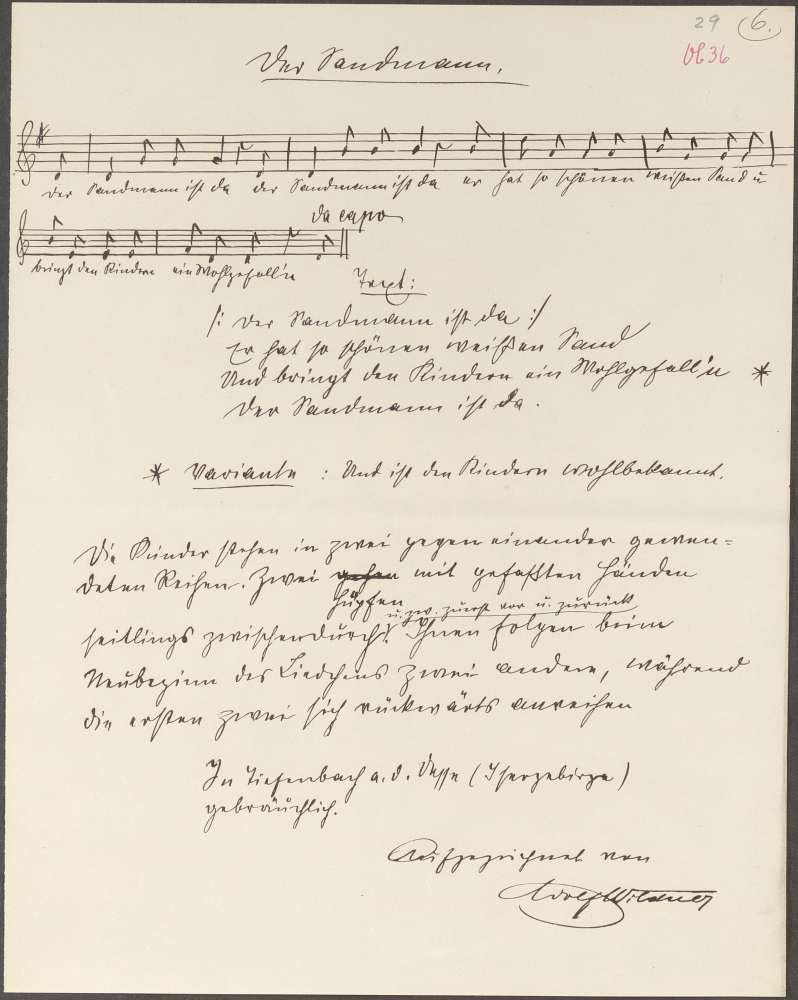 29 6.
VI 36
Der Sandmann.
Der Sandmann ist da der Sandmann ist da er hat so schönen weißen Sand u
da capo
bringt den Kindern ein Wohlgefall'n
Text:
/: Der Sandmann ist da :/
Er hat so schönen weißen Sand
Und bringt den Kindern ein Wohlgefall'n *
Der Sandmann ist da.
* Variante : Und ist den Kindern wohlbekannt.
Die Kinder stehen in zwei gegen einander gewen=
deten Reihen. Zwei gehen mit gefaßten Händen
hüpfen
u. zw. zuerst vor u. zurück
seitlings zwischendurch. Ihnen folgen beim
Neubeginn des Liedchens zwei andere, während
die ersten zwei sich rückwärts anreihen
In Tiefenbach a. d. Desse (Isergebirge)
gebräuchlich.
Aufgezeichnet von
Adolf Wildner